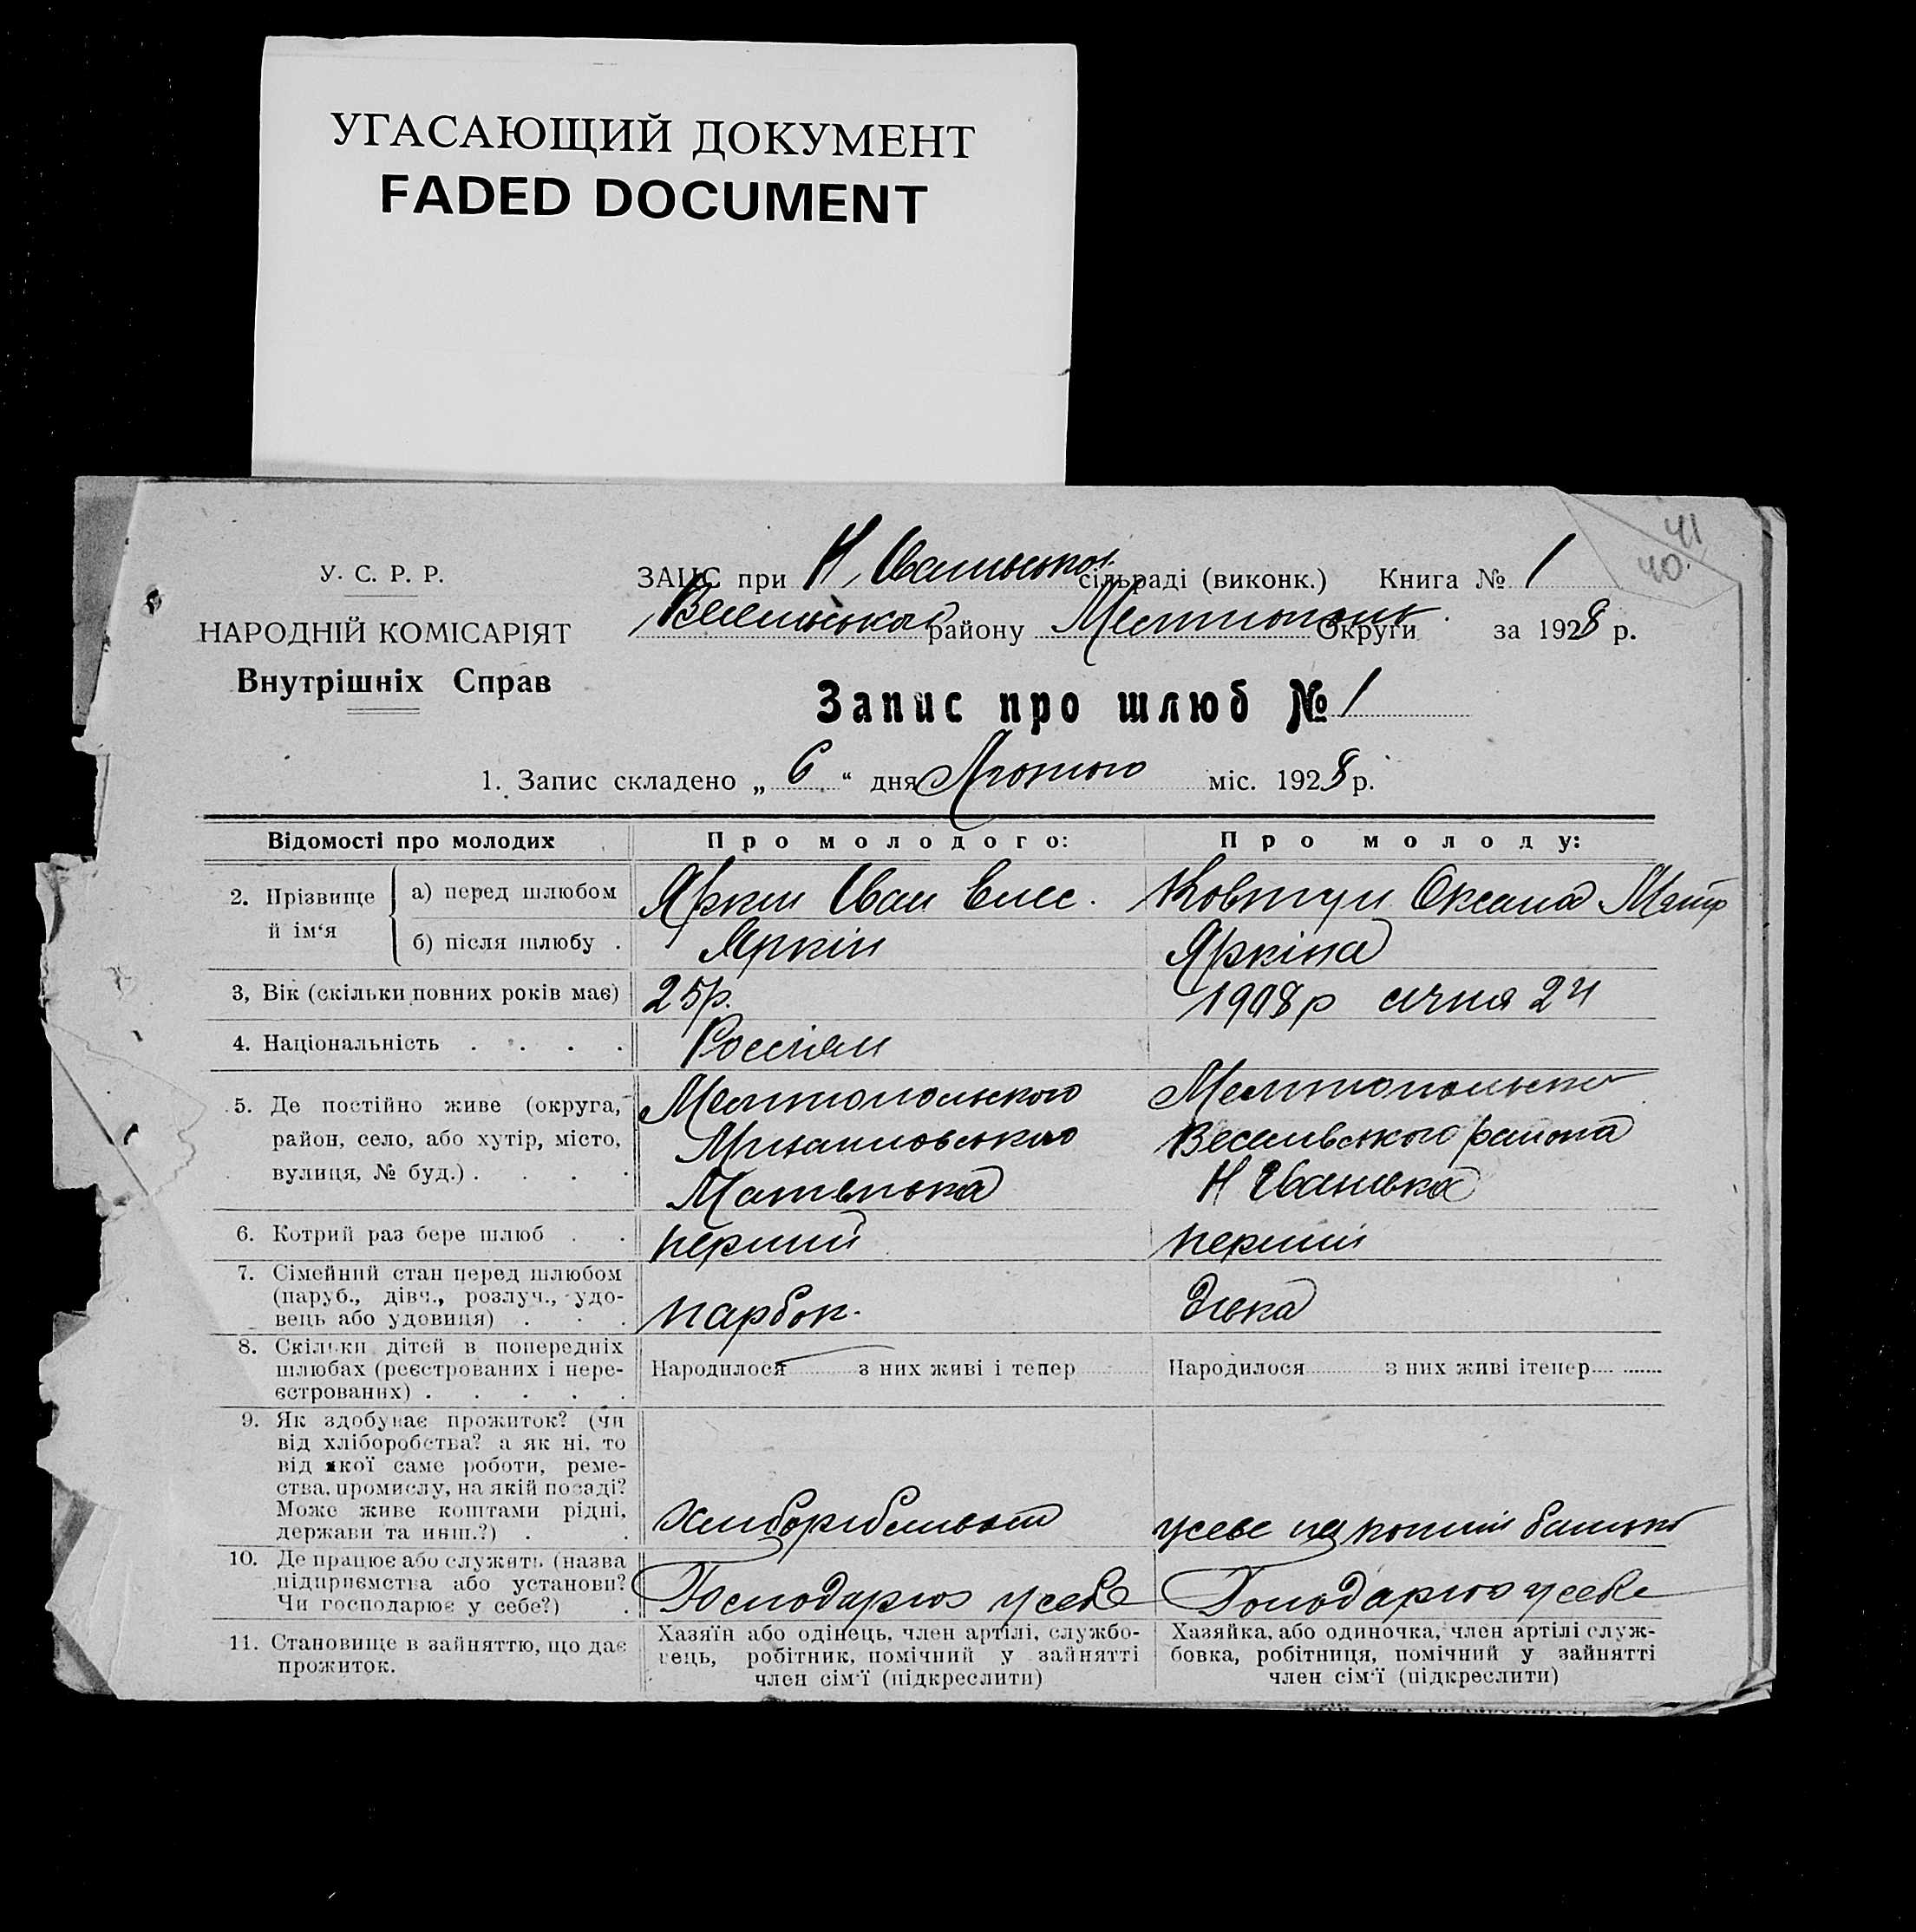 УГАСАЮЩИЙ ДОКУМЕНТ
FADED DOCUMENT
41
40
У. С. Р. Р.
НАРОДНІЙ КОМІСАРІЯТ
Внутрішніх Справ
ЗАЦС при Н, Іванівської сільраді (виконк.) Книга № 1
району Округи за 1928 р.
Запис про шлюб № 1
1. Запис складено „ 6 “ дня Лютого міс. 1928 р.
Відомості про молодих Про молодого: Про молоду:
2. Прізвище й ім‘я
а) перед шлюбом Яркин Іван Ковтун Оксана
б) після шлюбу . Яркін Яркіна
3, Вік (скільки повних років має) 25р. 1908 р січня 24
4. Національність . . . . Россіян
5. Де постійно живе (округа, Мелитопольского
район, село, або хутір, місто, Веселивського района
вулиця, № буд.) . . . . Н Іванівка
6. Котрий раз бере шлюб . . перший перший
7. Сімейний стан перед шлюбом
(паруб., дівч., розлуч., удо-
вець або удовиця) . . . парбок. дівка
8. Скільки дітей в попередніх
шлюбах (реєстрованих і нере-
єстрованих) . . . . .
Народилося з них живі і тепер Народилося з них живі ітепер
9. Як здобуває прожиток? (чи
від хліборобства? а як ні, то
від якої саме роботи, реме-
ства, промислу, на якій посаді?
Може живе коштами рідні,
держави та инш.?) . .
10. Де працює або служить (назва
підприємства або установи?
Чи господарює у себе?) . Господарює усебе Гоподарює усебе
11. Становище в зайняттю, що дає
прожиток.
Хазяїн або одінець, член артілі, службо-
вець, робітник, помічний у зайнятті
член сім‘ї (підкреслити)
Хазяйка, або одиночка, член артілі служ-
бовка, робітниця, помічний у зайнятті
член сім‘ї (підкреслити)